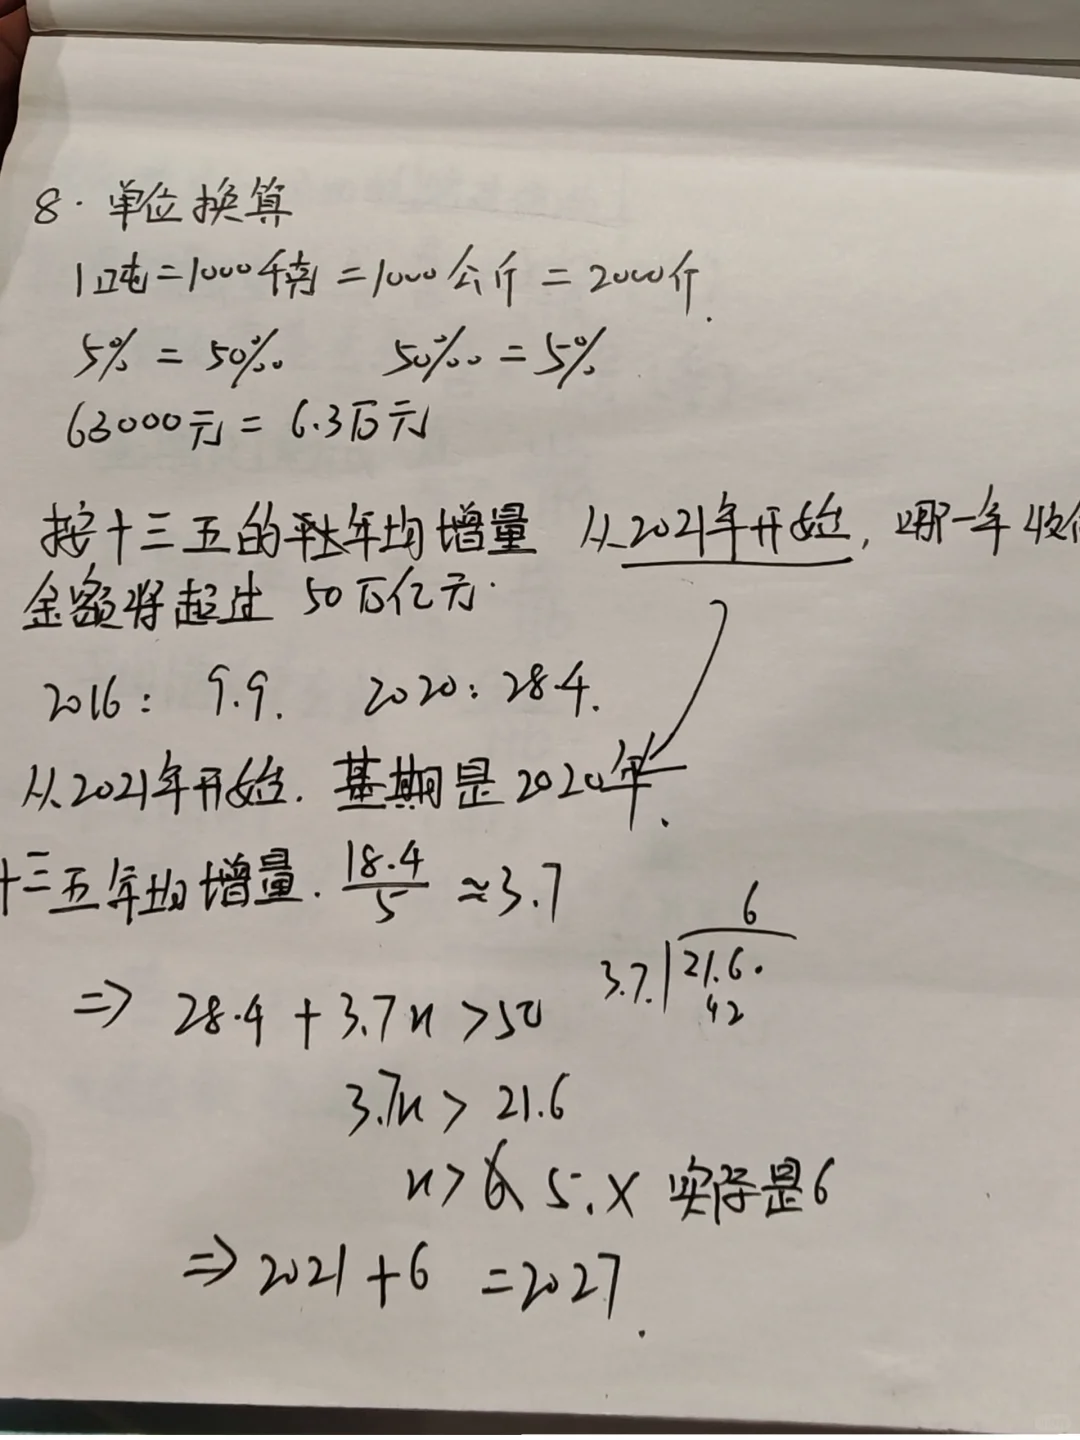 8. 单位换算
1吨=1000千克=1000公斤=2000斤.
5%=50‰ 50‰=5%
63000元=6.3万元
按十三五的年均增量 从2021年开始,哪一年收
金额将超过 50万亿元.
2016: 9.9. 2020: 28.4.
从2021年开始. 基期是2020年.
十三五年均增量. 18.4/5 ≈3.7
6
3.7.|21.6.
42
⇒ 28.4+3.7n>50
3.7n> 21.6
n> 5.X 实际是6
⇒2021+6 =2027.